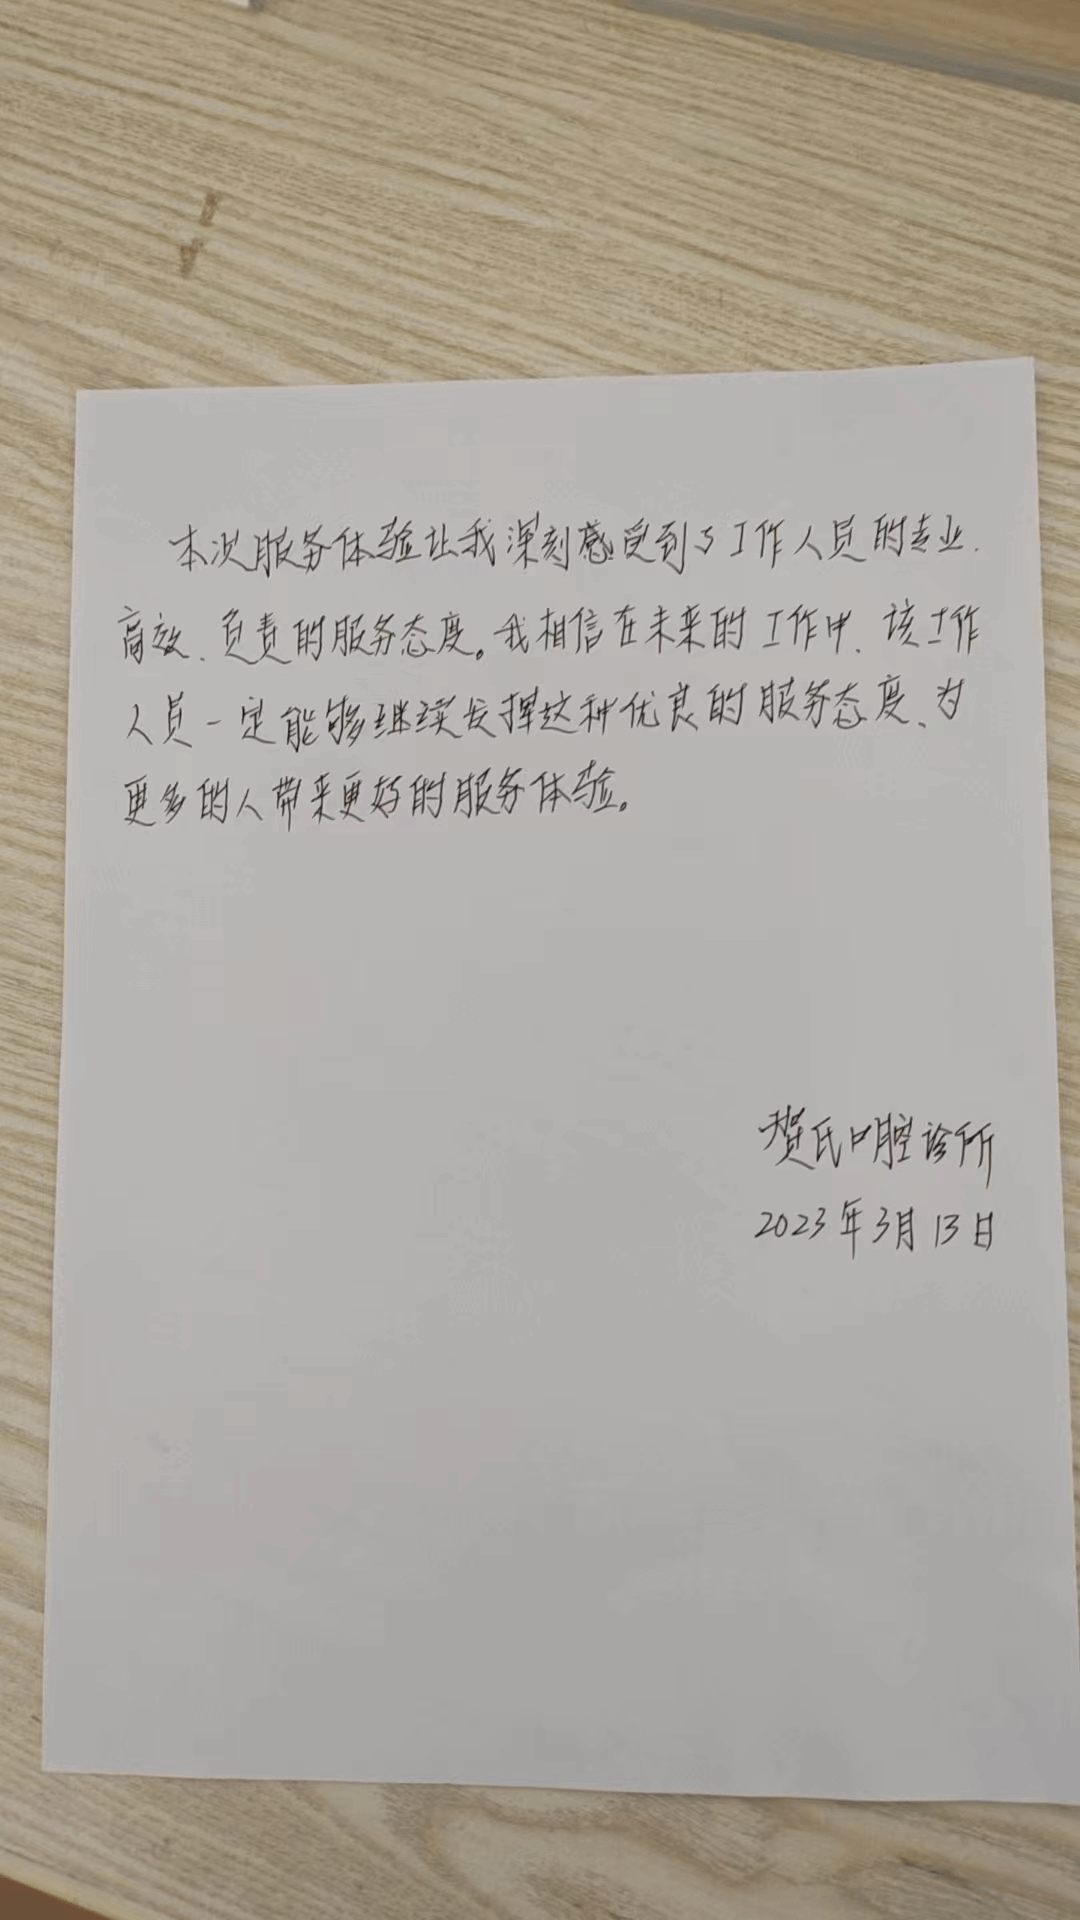 本次服务体验让我深刻感受到了工作人员的专业、
高效、负责的服务态度。我相信在未来的工作中、该工作
人员一定能够继续发挥这种优良的服务态度、为
更多的人带来更好的服务体验。
贺氏口腔诊所
2023年3月13日